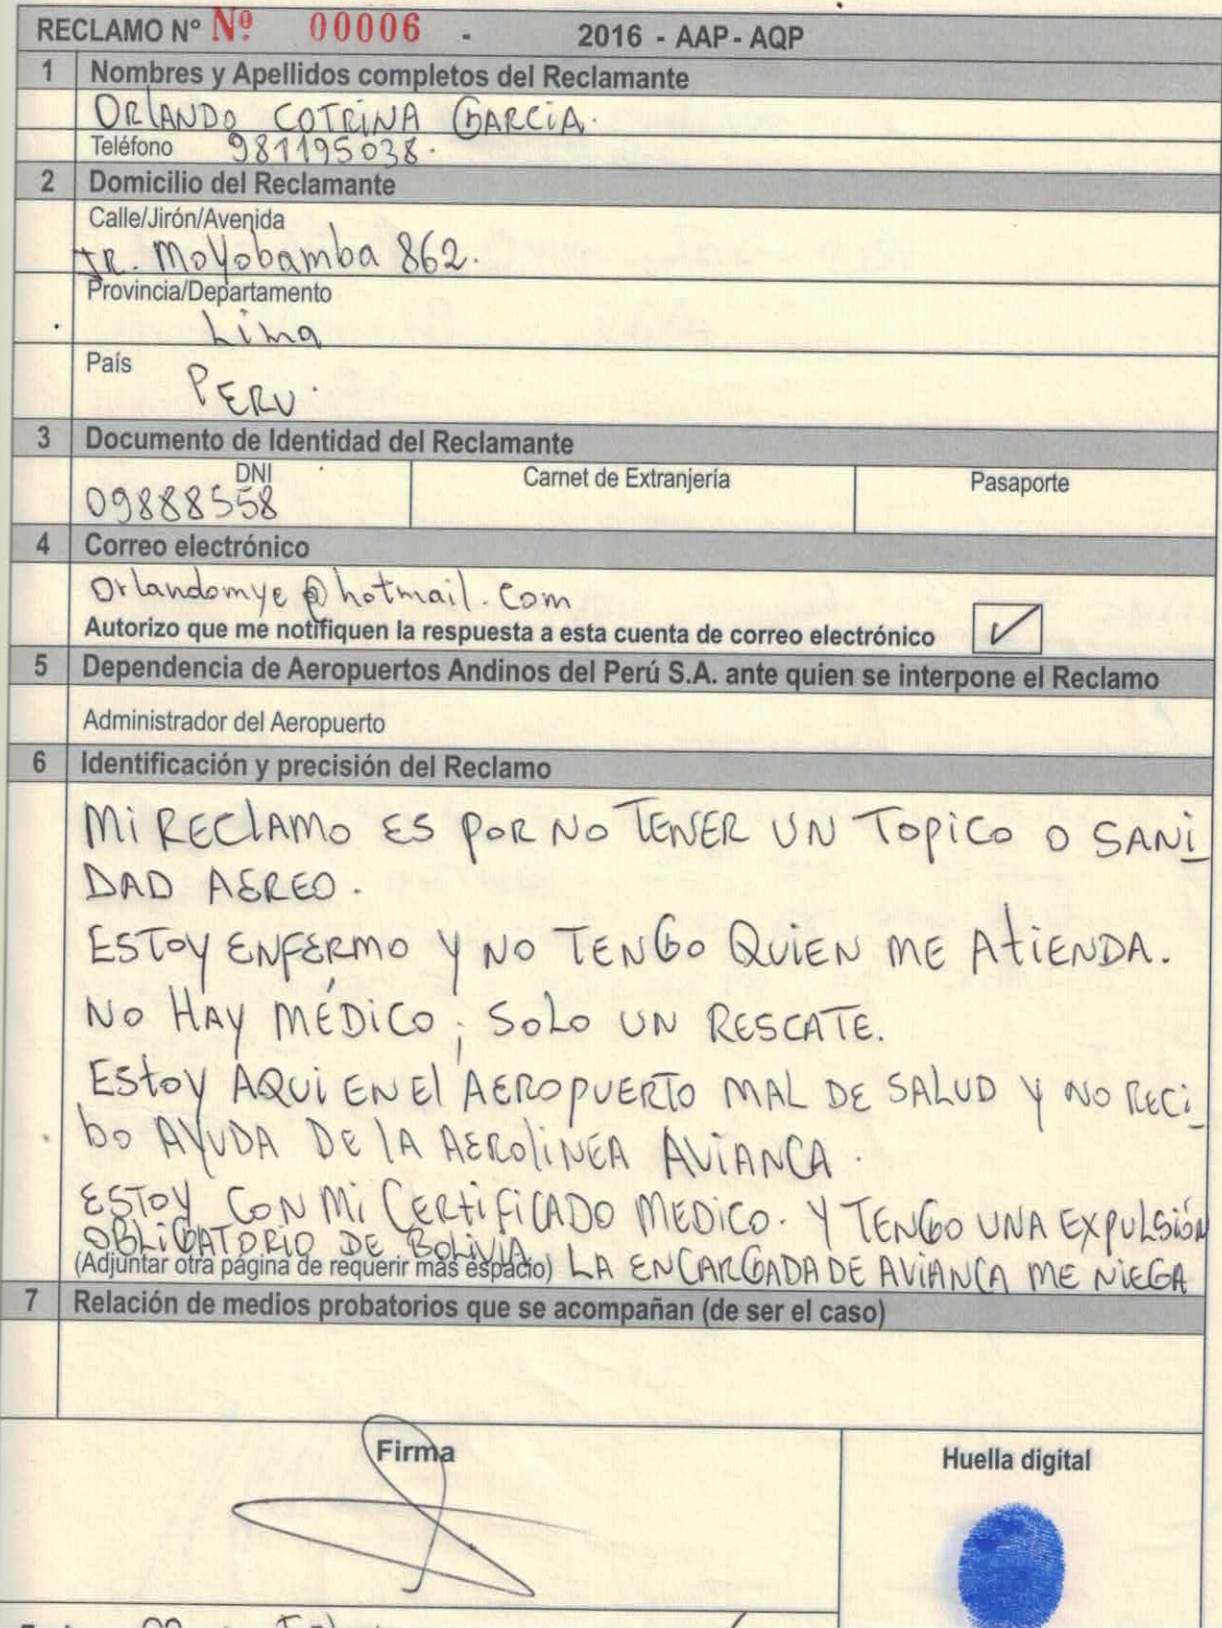 RECLAMO N° Nº 00006 - 2016 - AAP - AQP
1 Nombres y Apellidos completos del Reclamante
ORLANDO COTRINA GARCIA.
Teléfono 981195038.
2 Domicilio del Reclamante
Calle/Jirón/Avenida
JR. Moyobamba 862.
Provincia/Departamento
Lima
País
PERU.
3 Documento de Identidad del Reclamante
DNI Carnet de Extranjería Pasaporte
09888558
4 Correo electrónico
Orlandomye@hotmail.com
Autorizo que me notifiquen la respuesta a esta cuenta de correo electrónico
5 Dependencia de Aeropuertos Andinos del Perú S.A. ante quien se interpone el Reclamo
Administrador del Aeropuerto
6 Identificación y precisión del Reclamo
Mi RECLAMO ES POR NO TENER UN TOPICO O SANI
DAD AEREO.
ESTOY ENFERMO Y NO TENGO QUIEN ME ATIENDA.
NO HAY MÉDICO; SOLO UN RESCATE.
ESTOY AQUI EN El AEROPUERTO MAL DE SALUD Y NO RECI
bo AYUDA DE lA AEROlINEA AVIANCA.
ESTOY CON Mi CERTIFICADO MEDICO. Y TENGO UNA EXPULSIÓN
OBLIGATORIO DE BOLIVIA.
(Adjuntar otra página de requerir más espacio) LA ENCARGADA DE AVIANCA ME NIEGA
7 Relación de medios probatorios que se acompañan (de ser el caso)
Firma Huella digital